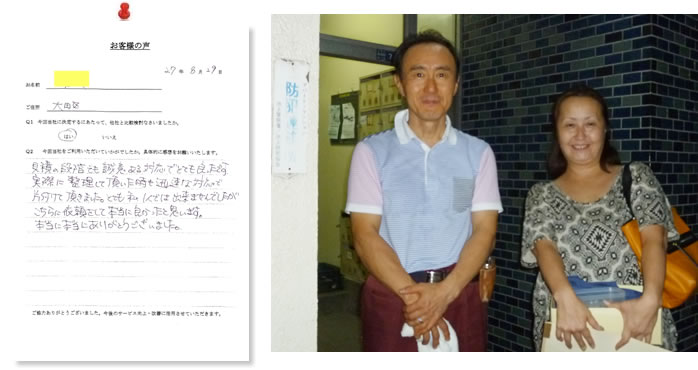 お客様の声
27年8月29日
お名前
ご住所 大田区
Q1 今回当社に決定するにあたって、他社と比較検討なさいましたか。
はい いいえ
Q2 今回当社をご利用いただいていかがでしたか。具体的に感想をお願いいたします。
見積の段階でも誠意ある対応でとても良た
実際に整理して頂いた時も迅速な対応で
片付けて頂きました。とても私1人では出来ませんでしたが
こちらに依頼をして本当に良かったと思います。
本当に本当にありがとうございました。
ご協力ありがとうございました。今後のサービス向上・改善に活用させていただきます。
防犯